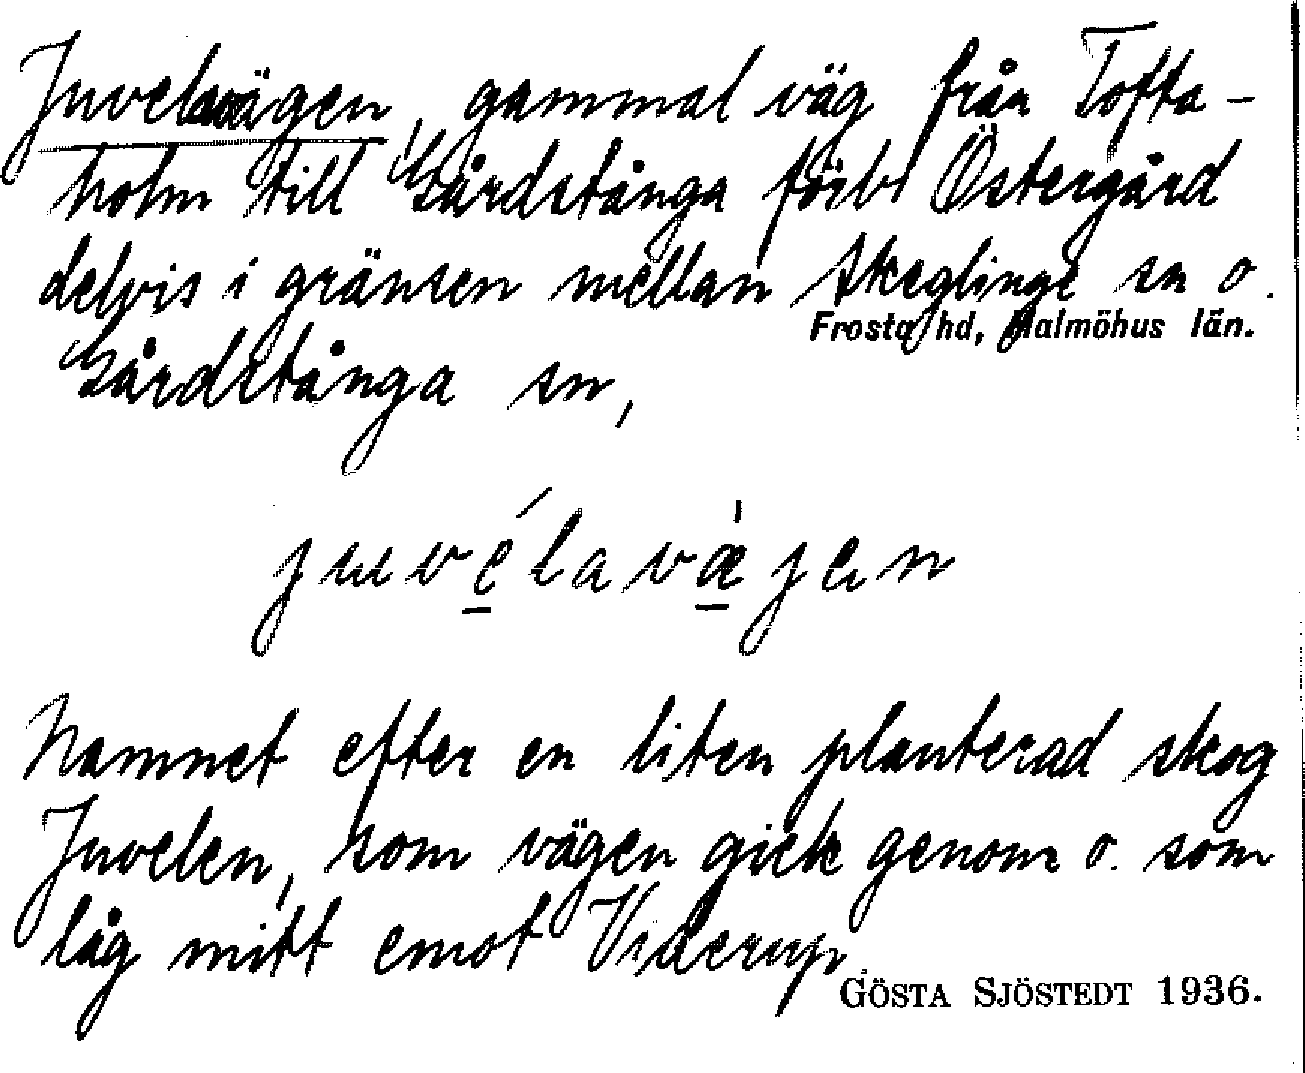 Juvelavägen, gammal väg från Tofta-
holm till Gårdstånga förbi Östergård
delvis i gränsen mellan Skeglinge sn o.
Frosta hd, Malmöhus län.
Gårdstånga sn,
juvélavæ̀jen
Namnet efter en liten planterad skog
Juvelen, som vägen gick genom o. som
låg mitt emot Viderup.
GÖSTA SJÖSTEDT 1936.